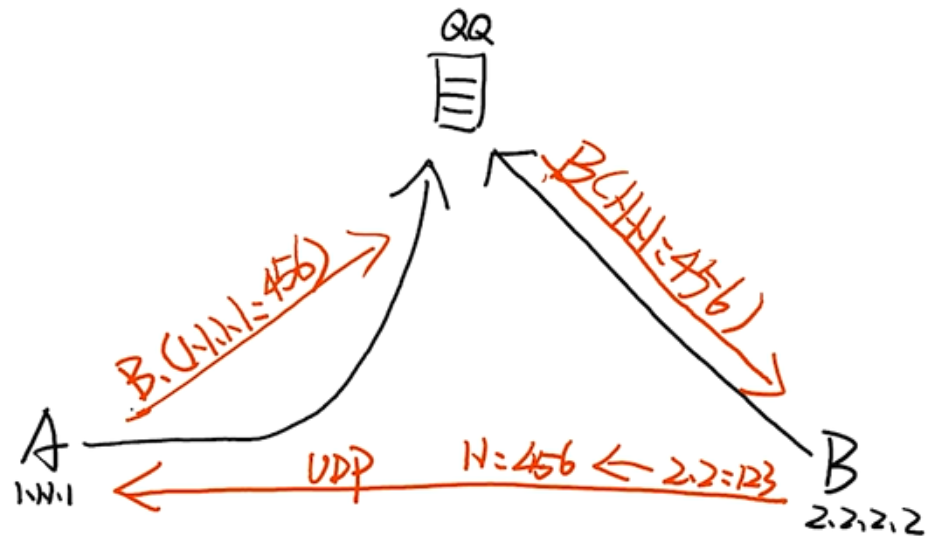 QQ
B(1.1.1.1:456)
B.(1.1.1.1:456)
A
1.1.1.1
UDP 1.1:456 ← 2.2:123
B
2.2.2.2